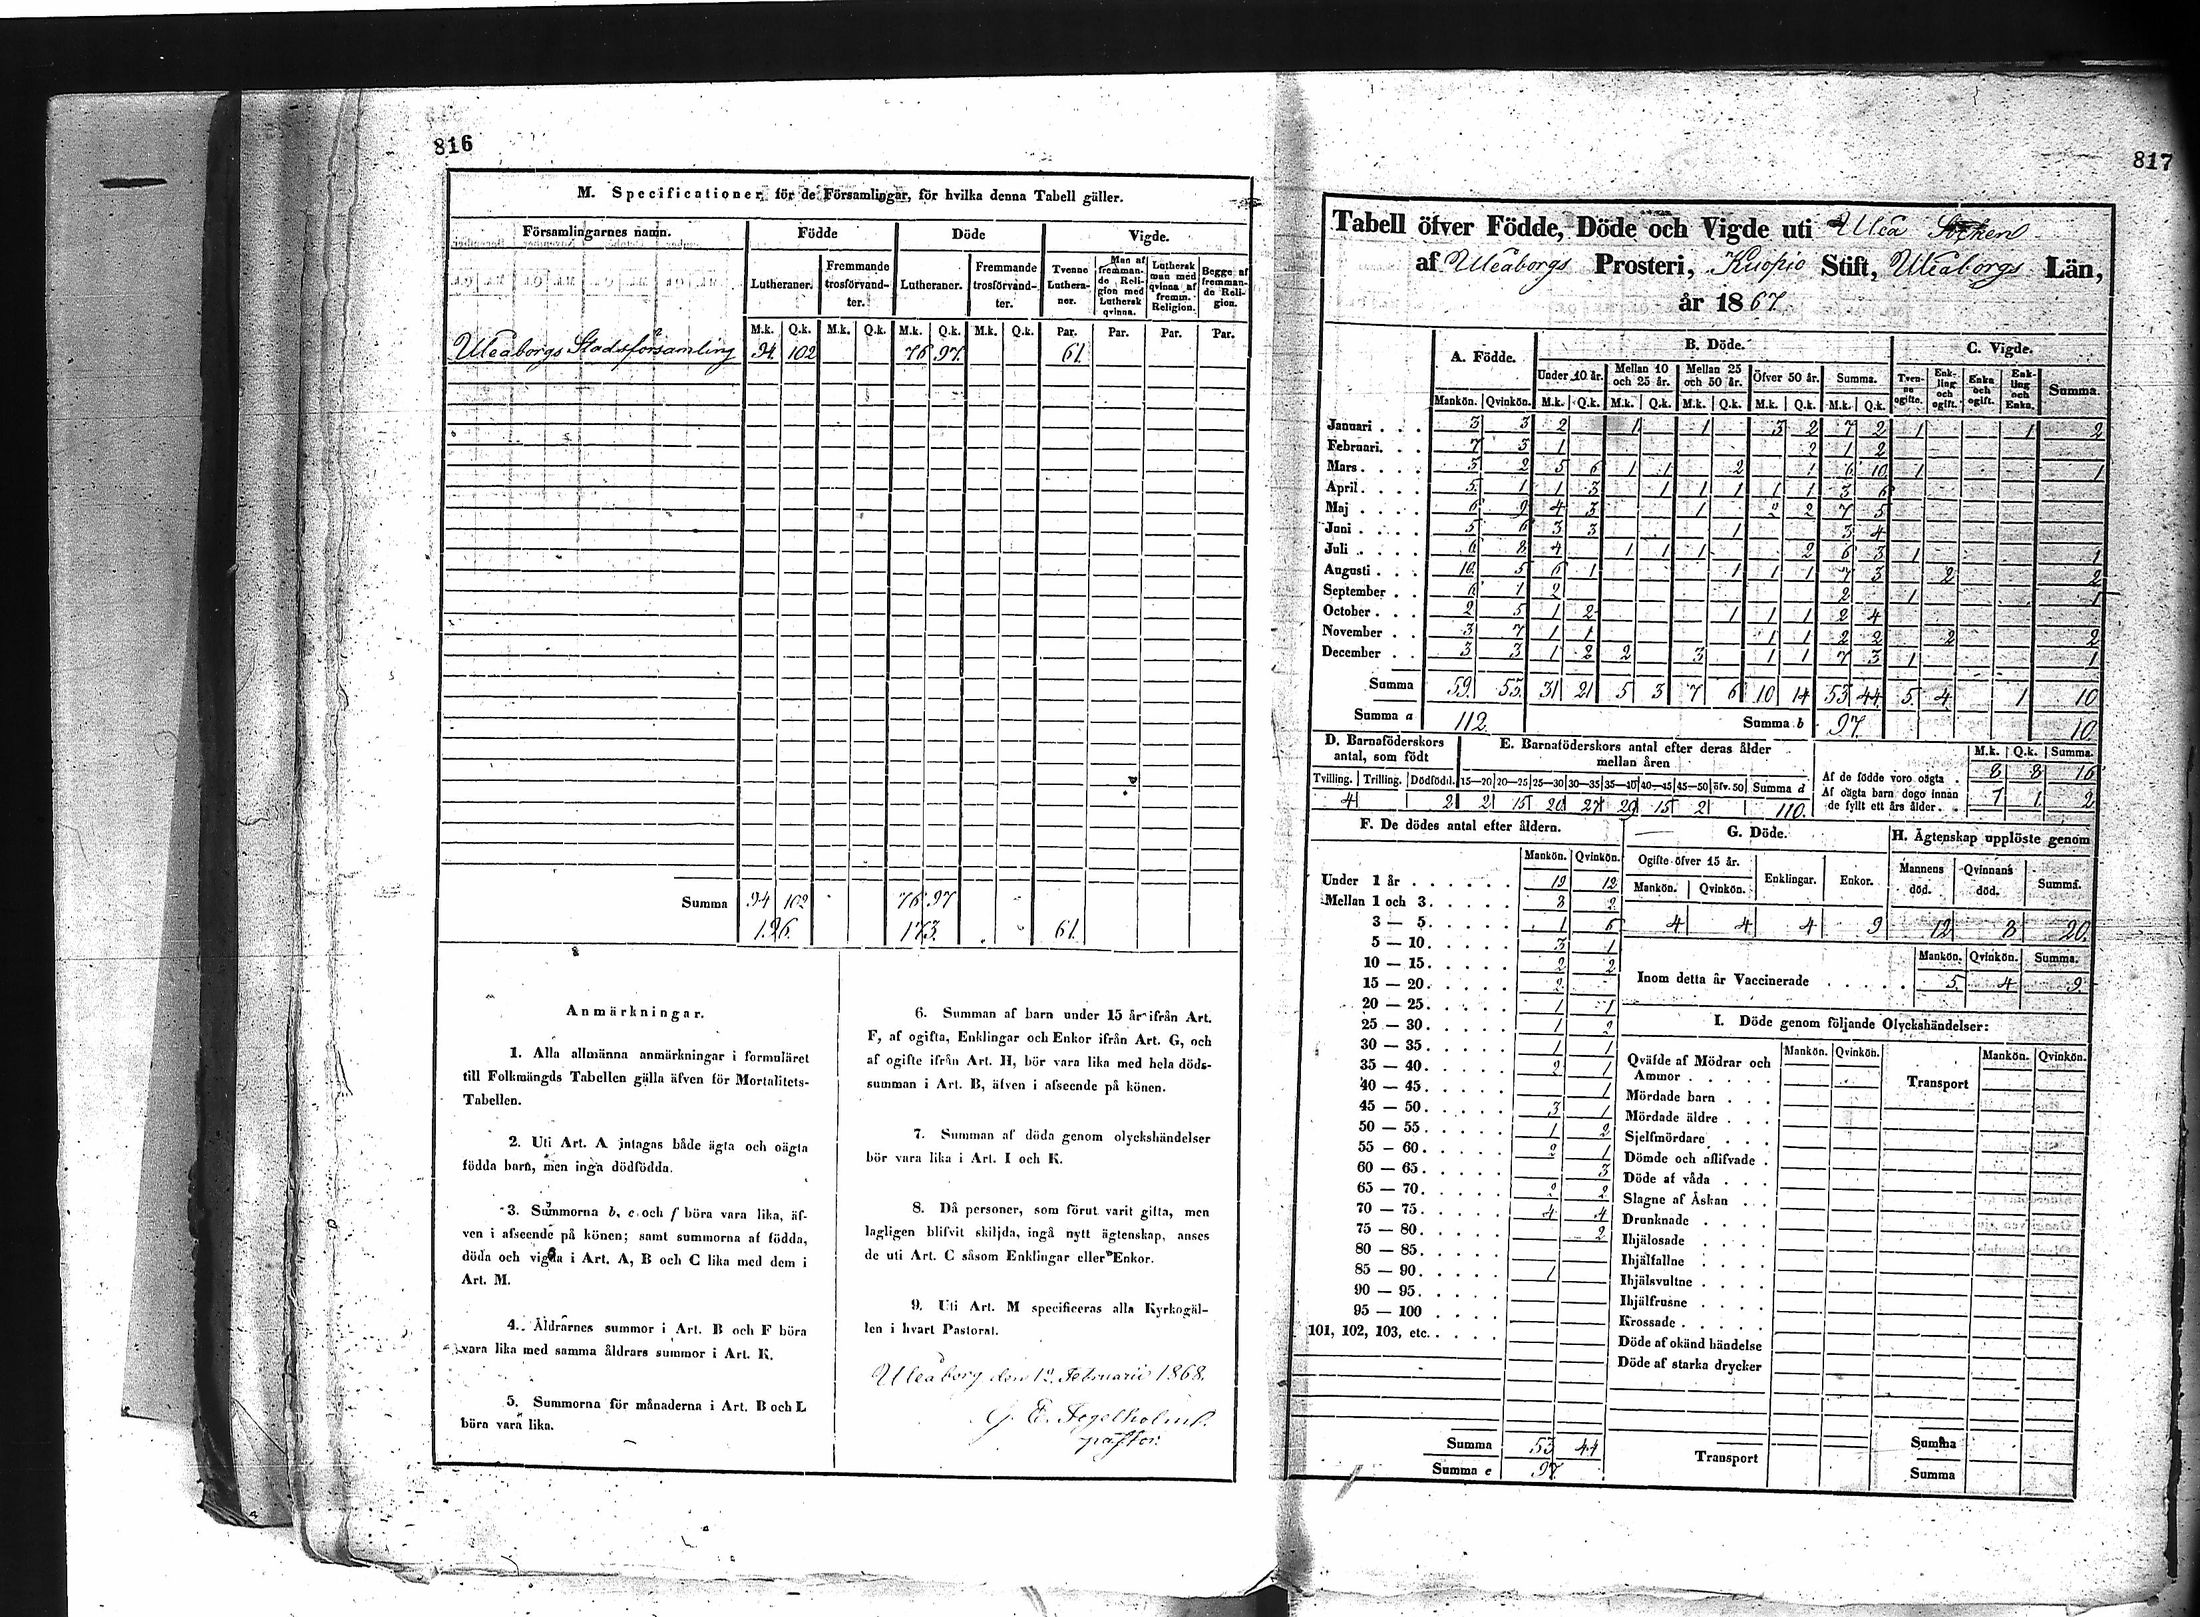 816
M. Specificationer, för de Församlingar, för hvilka denna Tabell gäller.
Församlingarnes namn. Födde Döde Vigde.
Lutheraner. Fremmande trosförvandter. Lutheraner. Fremmande trosförvandter. Tvenne Lutheraner. Man af fremmande Religion med Luthersk qvinna. Luthersk man med qvinna af fremm. Religion. Begge af fremmande Religion.
M.k. Q.k. M.k. Q.k. M.k. Q.k. M.k. Q.k. Par. Par. Par. Par.
Uleåborgs Stadsförsamling 94 102 76 97 61
Summa 94 102 76 97
196 173 61
Anmärkningar.
1. Alla allmänna anmärkningar i formuläret
till Folkmängds Tabellen gälla äfven för Mortalitets-
Tabellen.
2. Uti Art. A intagas både ägta och oägta
födda barn, men inga dödfödda.
3. Summorna b, e och f böra vara lika, äf-
ven i afseende på könen; samt summorna af födda,
döda och vigda i Art. A, B och C lika med dem i
Art. M.
4. Åldrarnes summor i Art. B och F böra
vara lika med samma åldrars summor i Art. K.
5. Summorna för månaderna i Art. B och L
böra vara lika.
6. Summan af barn under 15 år ifrån Art.
F, af ogifta, Enklingar och Enkor ifrån Art. G, och
af ogifte ifrån Art. H, bör vara lika med hela döds-
summan i Art. B, äfven i afseende på könen.
7. Summan af döda genom olyckshändelser
bör vara lika i Art. I och K.
8. Då personer, som förut varit gifta, men
lagligen blifvit skiljda, ingå nytt ägtenskap, anses
de uti Art. C såsom Enklingar eller Enkor.
9. Uti Art. M specificeras alla Kyrkogäl-
len i hvart Pastorat.
Uleåborg den 12 Februarii 1868.
pastor.
817
Tabell öfver Födde, Döde och Vigde uti Uleå Socken
af Uleåborgs Prosteri, Kuopio Stift, Uleåborgs Län,
år 1867.
A. Födde. B. Döde. C. Vigde.
Under 10 år. Mellan 10 och 25 år. Mellan 25 och 50 år. Öfver 50 år. Summa. Tvenne ogifte. Enkling och ogift. Enka och ogift. Enkling och Enka. Summa.
Mankön. Qvinkön. M.k. Q.k. M.k. Q.k. M.k. Q.k. M.k. Q.k. M.k. Q.k.
Januari 3 3 2 1 1 3 2 7 2 1 1 2
Februari. 7 3 1 2 1 2
Mars 3 2 5 6 1 1 2 1 6 10 1 1
April 5 1 1 3 1 1 1 1 1 3 6
Maj 6 9 4 3 1 2 2 7 5
Juni 5 6 3 3 1 3 4
Juli 6 8 4 1 1 1 2 6 3 1 1
Augusti 10 5 6 1 1 1 1 7 3 2 2
September 6 1 2 2 1 1
October 2 5 1 2 1 1 1 2 4
November 3 7 1 1 1 1 2 2 2 2
December 3 3 1 2 2 3 1 1 7 3 1 1
Summa 59 53 31 21 5 3 7 6 10 14 53 44 5 4 1 10
Summa a 112 Summa b 97 10
D. Barnaföderskors antal, som födt
Tvilling. Trilling. Dödfödd.
4 2
E. Barnaföderskors antal efter deras ålder mellan åren
15—20 20—25 25—30 30—35 35—40 40—45 45—50 öfv. 50 Summa d
2 15 20 27 29 15 2 110.
M.k. Q.k. Summa.
Af de födde voro oägta . 8 8 16
Af oägta barn dogo innan de fyllt ett års ålder. . 1 1 2
F. De dödes antal efter åldern.
Mankön. Qvinkön.
Under 1 år 19 12
Mellan 1 och 3. 8 2
3 — 5. 1 6
5 — 10. 3 1
10 — 15. 2 2
15 — 20. 2
20 — 25. 1 1
25 — 30. 1 2
30 — 35. 1 1
35 — 40. 2 1
40 — 45. 1
45 — 50. 3 1
50 — 55. 1 2
55 — 60. 2 1
60 — 65. 3
65 — 70. 2 2
70 — 75. 4 4
75 — 80. 2
80 — 85.
85 — 90. 1
90 — 95.
95 — 100
101, 102, 103, etc.
Summa 53 44
Summa e 97
G. Döde.
Ogifte öfver 15 år. Enklingar. Enkor.
Mankön. Qvinkön.
4 4 4 9
H. Ägtenskap upplöste genom
Mannens död. Qvinnans död. Summa.
12 8 20.
Mankön. Qvinkön. Summa.
Inom detta år Vaccinerade 5 4 9
I. Döde genom följande Olyckshändelser:
Mankön. Qvinkön. Mankön. Qvinkön.
Qväfde af Mödrar och Ammor Transport
Mördade barn
Mördade äldre
Sjelfmördare
Dömde och aflifvade
Döde af våda
Slagne af Åskan
Drunknade
Ihjälosade
Ihjälfallne
Ihjälsvultne
Ihjälfrusne
Krossade
Döde af okänd händelse
Döde af starka drycker
Transport
Summa
Summa